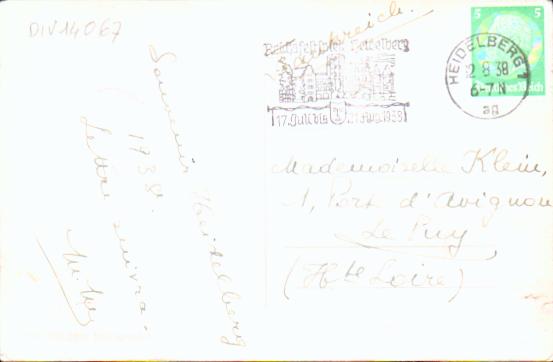 DIV14067
Souvenir Heidelberg
1938.
Lettre suivra.
Frankreich.
Reichsfestspiele Heidelberg
17. Juli bis 21. Aug. 1938
HEIDELBERG 1
2 8 38
6-7 N
ag
5 5
Deutsches Reich
Mademoiselle Klein,
1, Port d'Avignon
Le Puy
(Hte Loire)